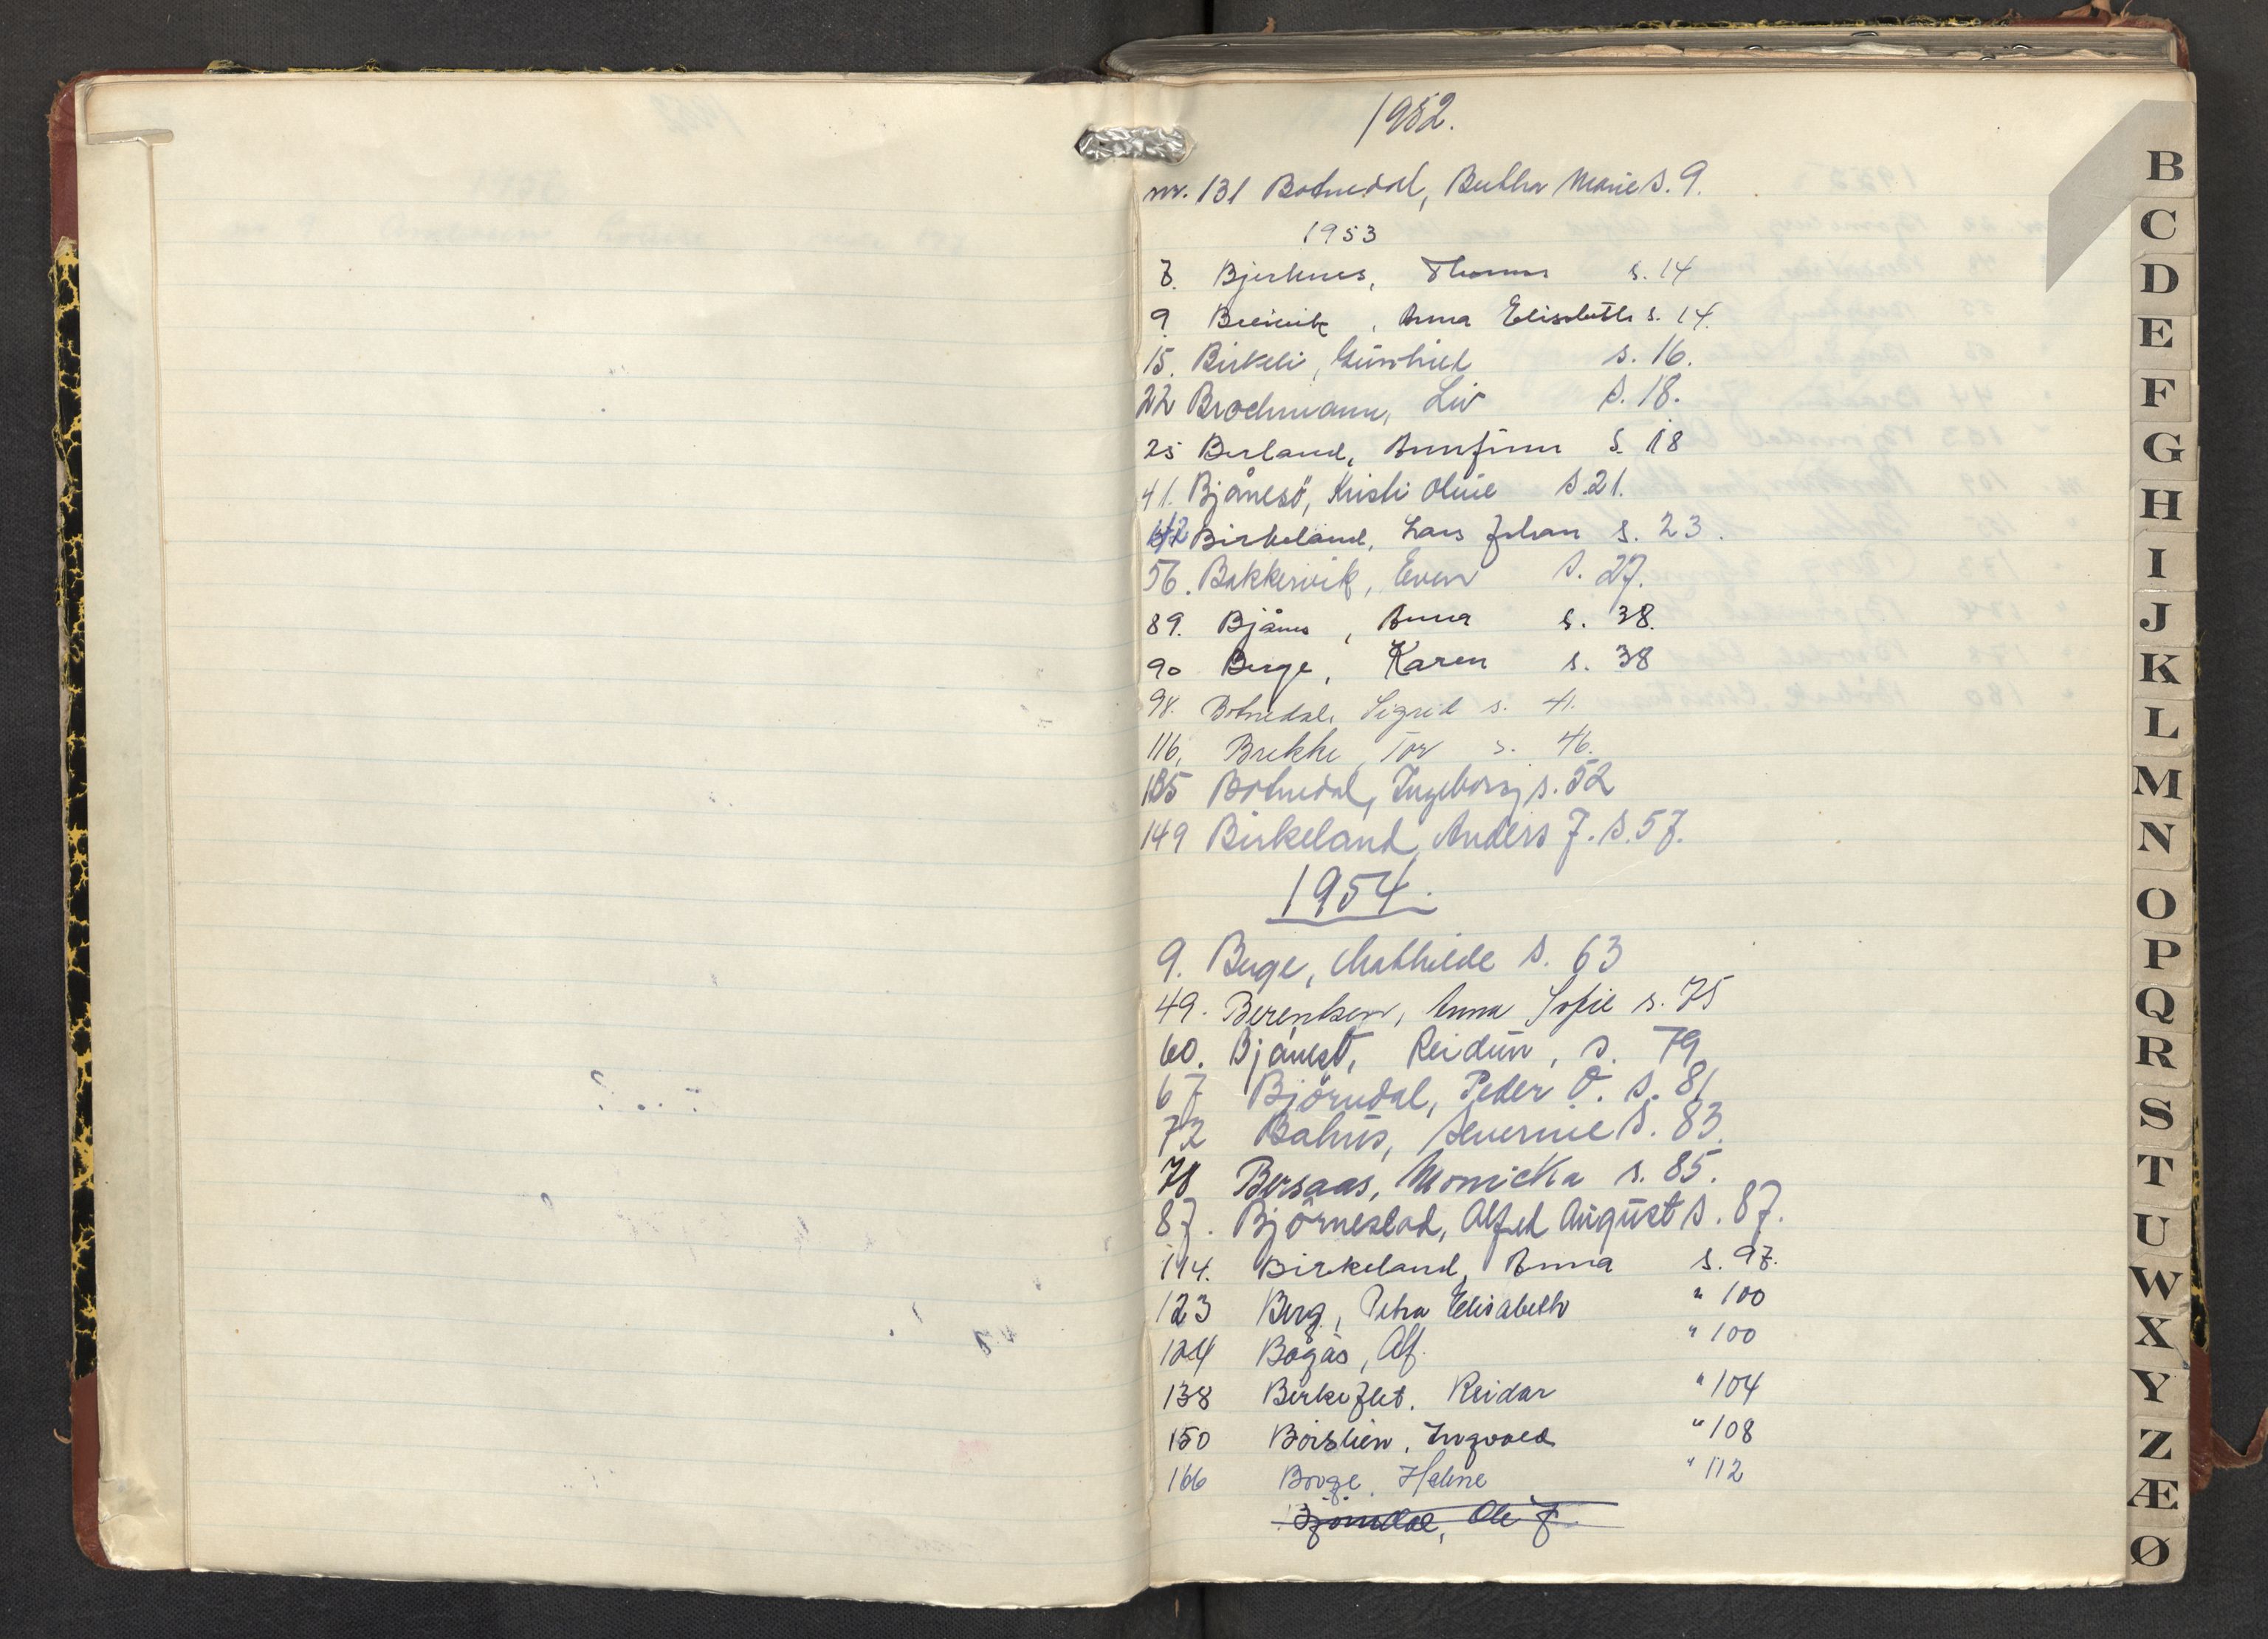 1952.
nr. 131 Botnedal, Bertha Marie s. 9.
1953
7. Bjerknes, Thomas s. 14
9 Breivik, Anna Elisabeth s. 14.
15. Birkeli, Gunhild s. 16.
22 Brochmann, Liv s. 18.
25 Berland, Arnfinn s. 18
41. Bjånesö, Kristi Oline s. 21.
Birkeland, Lars Johan s. 23.
56. Bakkervik, Even s. 27.
89. Bjånes, Anna s. 38.
90 Berge, Karen s. 38
98. Botnedal, Sigrid s. 41.
116, Brekke, Tor s. 46.
135 Botnedal, Ingeborg s. 52
149 Birkeland, Anders J. s. 57.
1954.
9. Berge, Mathilde s. 63
49. Berentsen, Anna Sofie s. 75
60. Bjånesö, Reidun, s. 79
67 Björndal, Peder O. s. 81
72 Bahus, Severine s. 83.
78 Bersaas, Monicka s. 85.
87. Björnestad, Alfred August s. 87.
114. Birkeland, Anna s. 97.
123 Berg, Petra Elisabeth " 100
124 Bogås, Alf. " 100
138 Birkeflet, Reidar " 104
150 Börslien, Ingvald " 108
166 Borge, Helene " 112
Björndal, Ole J
B
C
D
E
F
G
H
I
J
K
L
M
N
O
P
Q
R
S
T
U
W
X
Y
Z
Æ
Ø